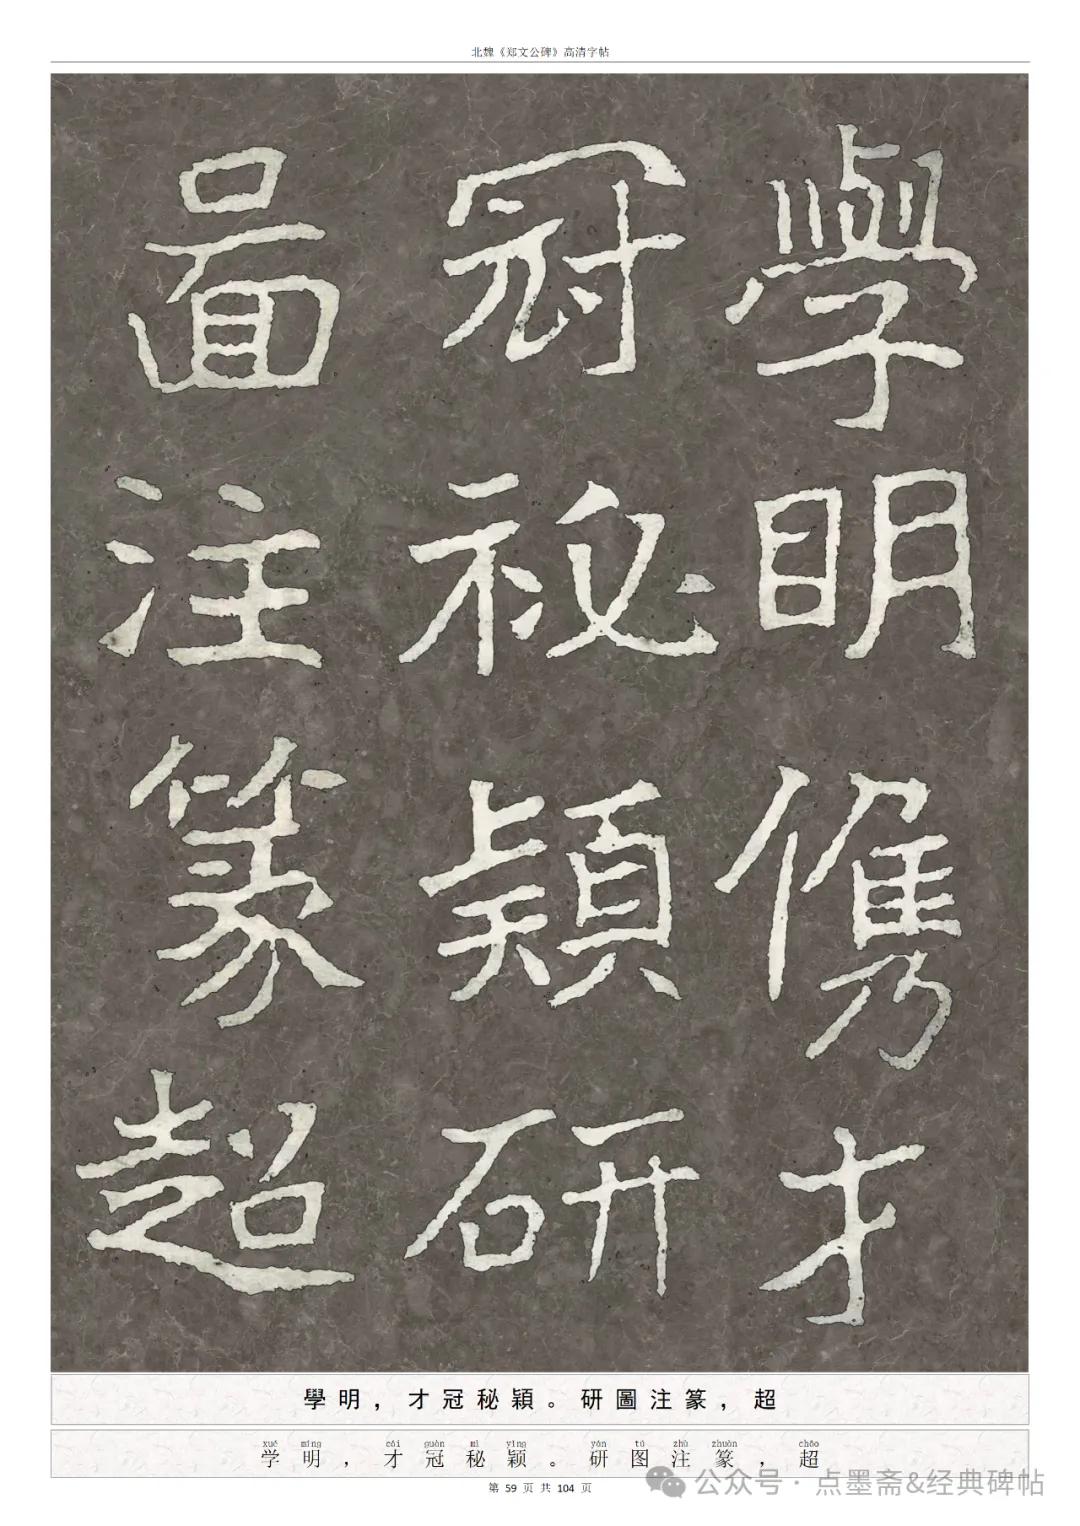 北魏《郑文公碑》高清字帖
學明儁才
冠祕穎研
啚注篆超
學明，才冠秘穎。研圖注篆，超
xué míng cái guàn mì yǐng yán tú zhù zhuàn chāo
学明，才冠秘颖。研图注篆，超
第 59 页 共 104 页
公众号 · 点墨斋&经典碑帖